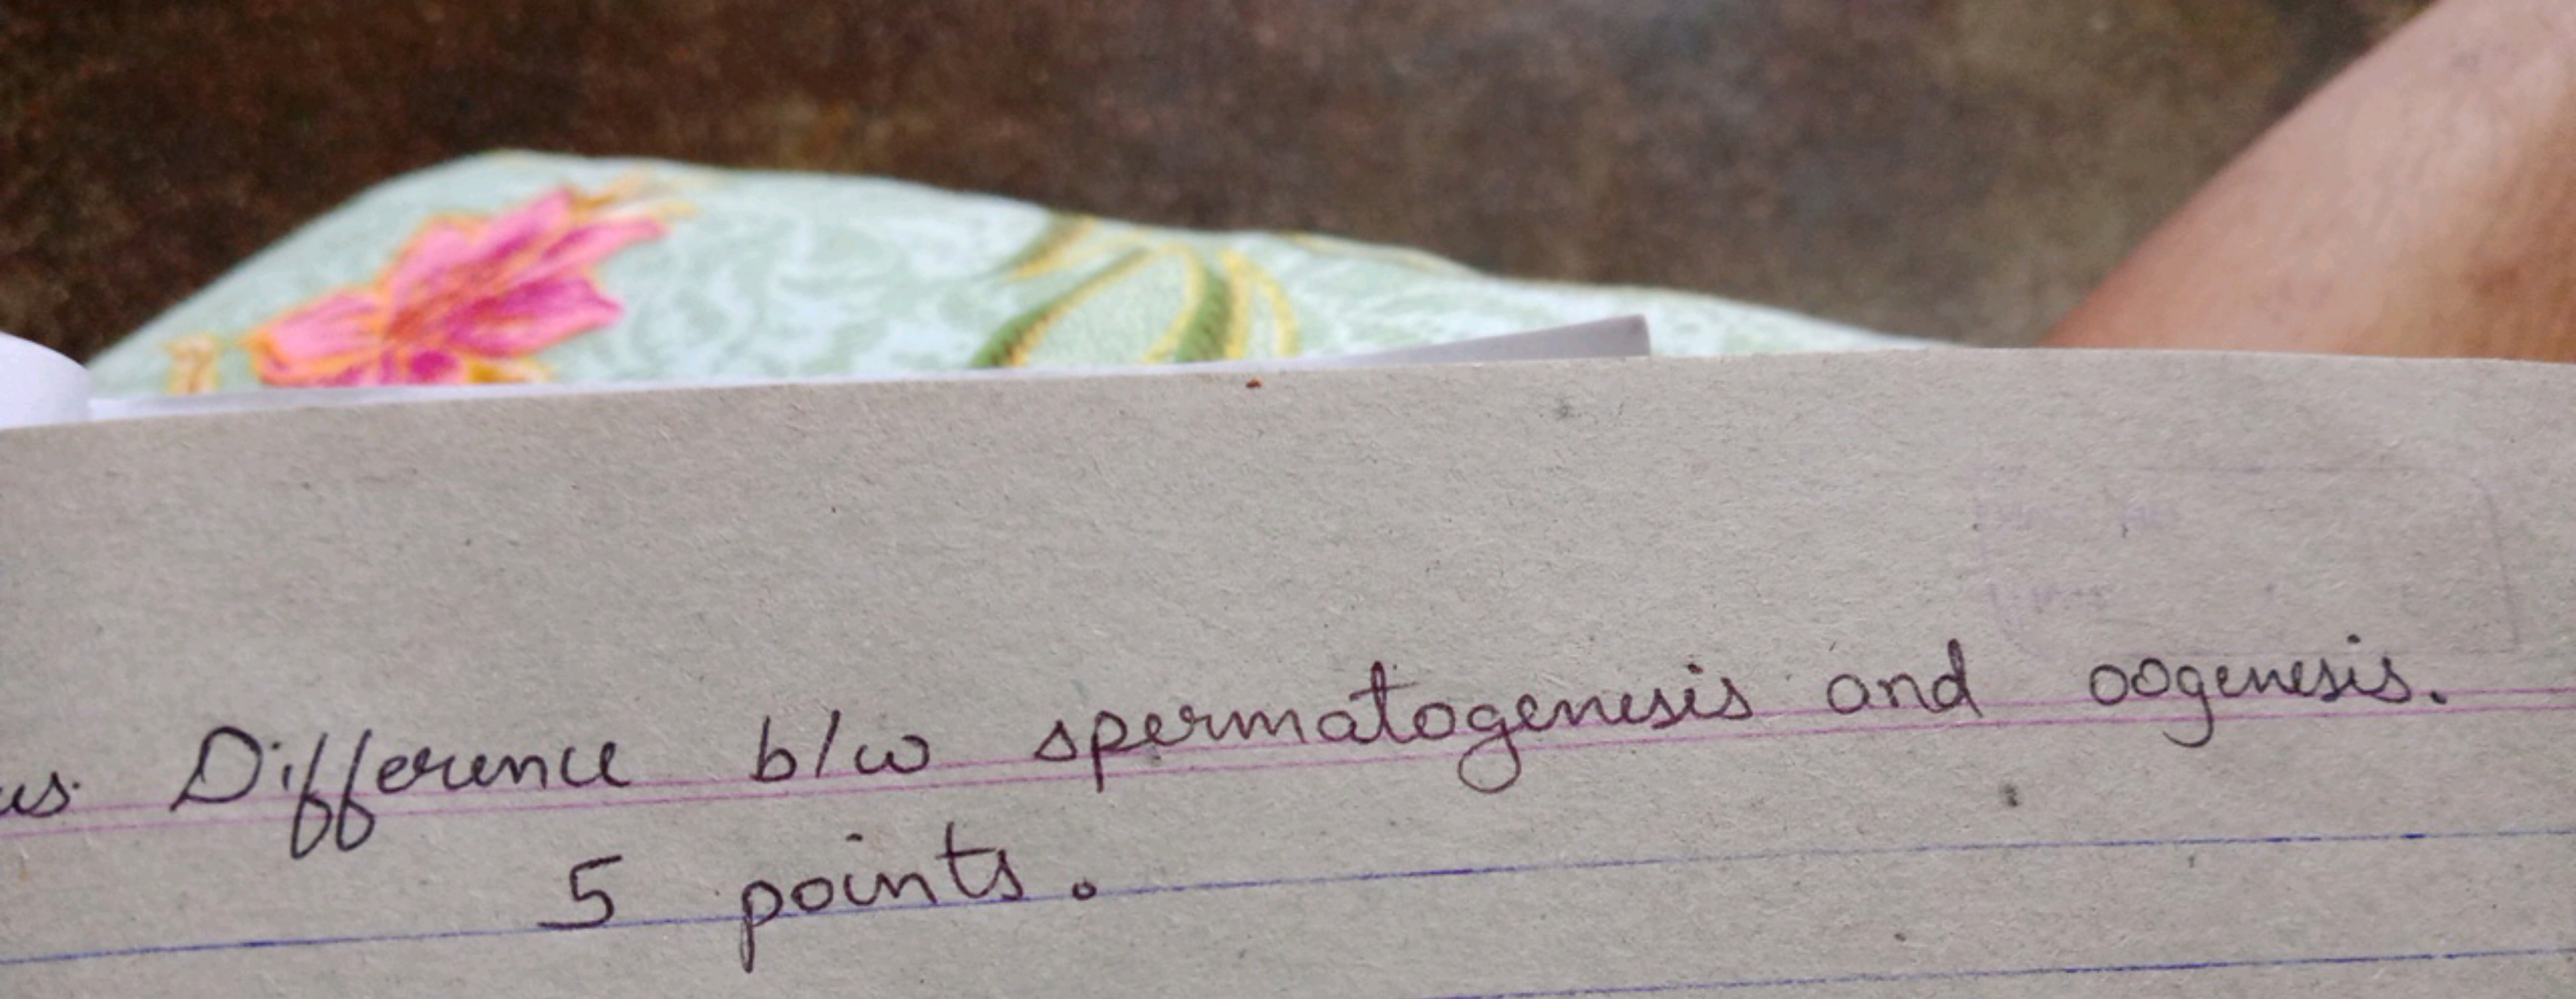 Difference b/w spermatogenesis and oogenesis.
5 points.